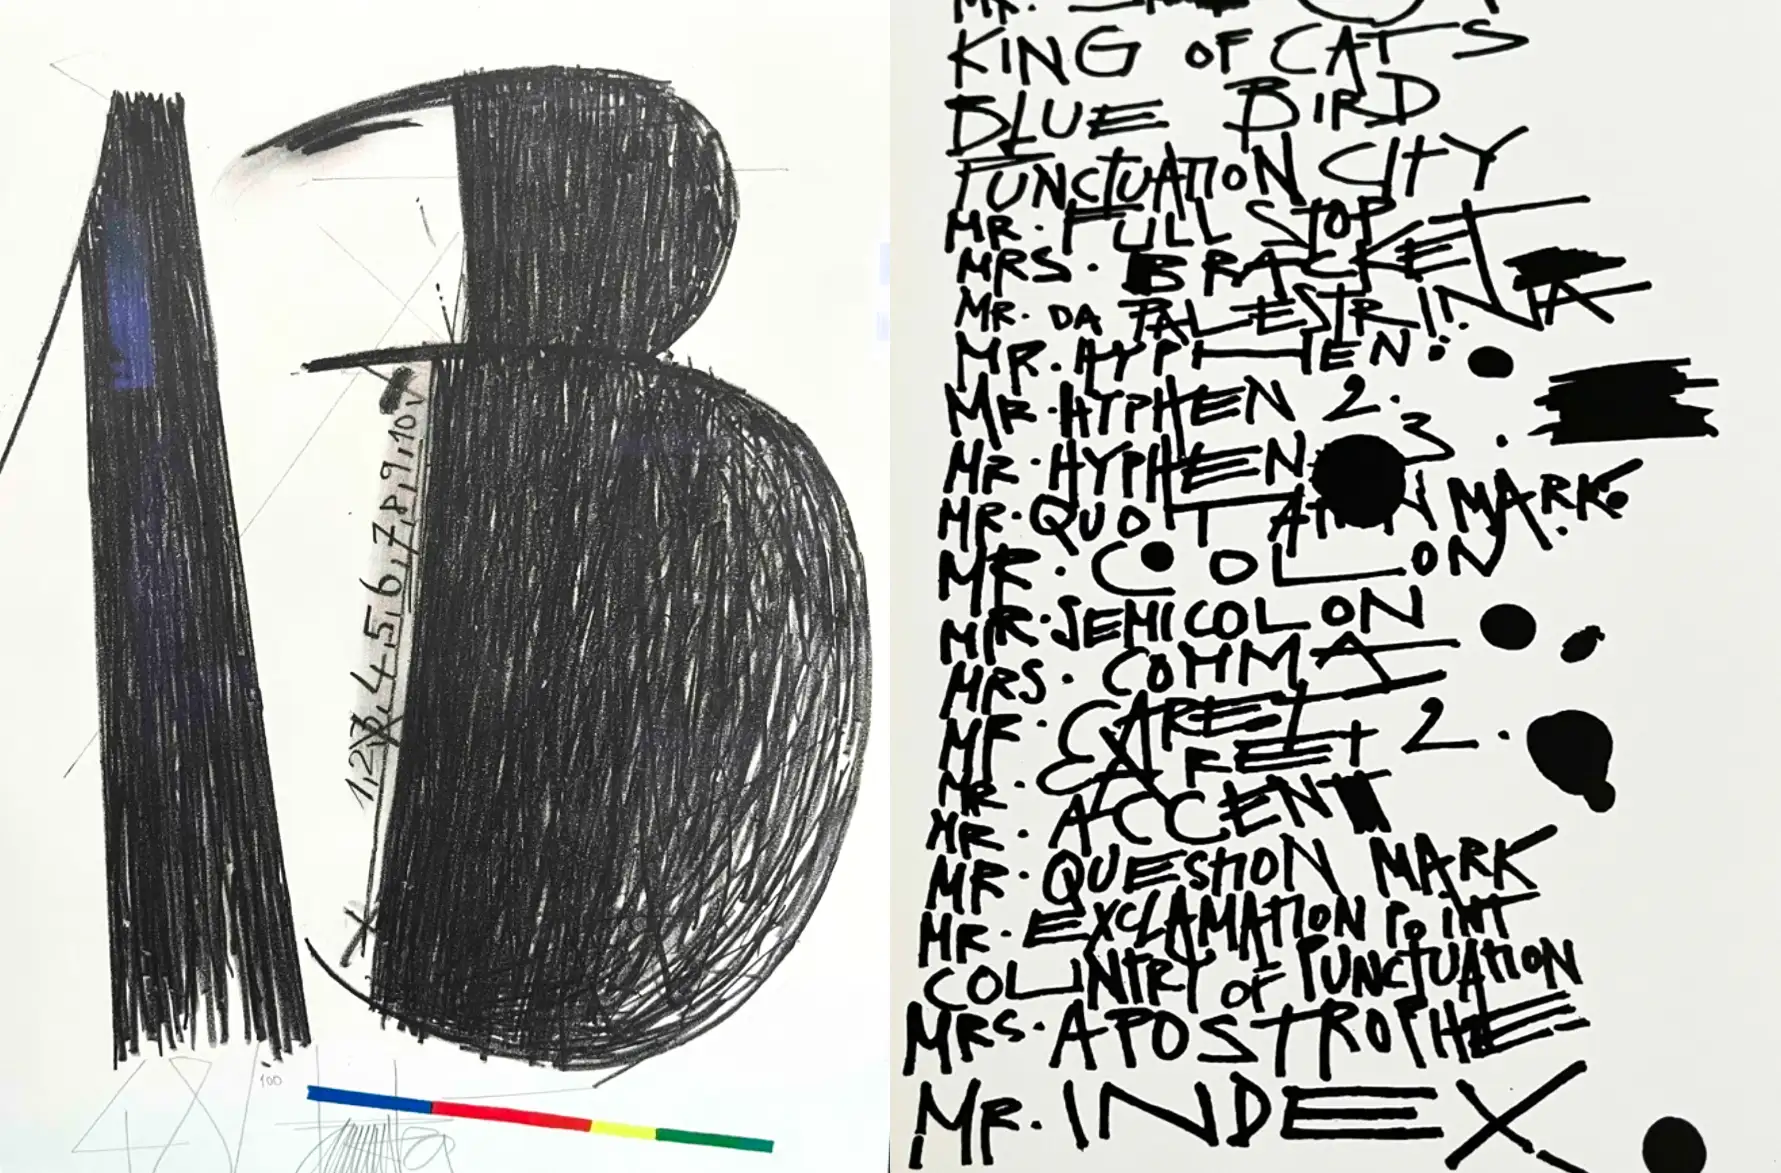 1,2,3,4,5,6,7,8,9,10
100
MR.
KING OF CATS
BLUE BIRD
PUNCTUATION CITY
MR. FULL STOP
MRS. BRACKET
MR. DA PALESTRINA
MR. HYPHEN.
MR. HYPHEN 2.
MR. HYPHEN 3.
MR. QUOTATION MARK.
MR. COLON
MR. SEMICOLON
MRS. COMMA
MR. CARET
MR. CARET 2.
MR. ACCENT
MR. QUESTION MARK
MR. EXCLAMATION POINT
COUNTRY OF PUNCTUATION
MRS. APOSTROPHE
MR. INDEX